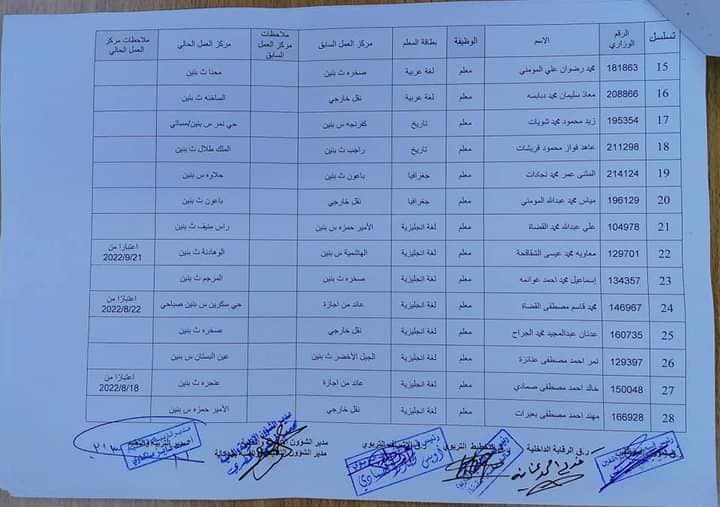 تسلسل الرقم الوزاري الاسم الوظيفة بطاقة المعلم مركز العمل السابق ملاحظات مركز العمل السابق مركز العمل الحالي ملاحظات مركز العمل الحالي
15 181863 محمد رضوان علي المومني معلم لغة عربية صخره ث بنين محنا ث بنين
16 208866 معاذ سليمان محمد دبابسه معلم لغة عربية نقل خارجي الساخنه ث بنين
17 195354 زيد محمود محمد شويات معلم تاريخ كفرنجه س بنين حي نمر س بنين/مسائي
18 211298 عاهد فواز محمود قريشات معلم تاريخ راجب ث بنين الملك طلال ث بنين
19 214124 المثنى عمر محمد نجادات معلم جغرافيا باعون ث بنين حلاوه س بنين
20 196129 مياس محمد عبدالله المومني معلم جغرافيا نقل خارجي باعون ث بنين
21 104978 علي عبدالله محمد القضاة معلم لغة انجليزية الأمير حمزه س بنين راس منيف ث بنين
22 129701 معاويه محمد عيسى الشقاقحة معلم لغة انجليزية الهاشمية س بنين الوهادنة ث بنين اعتبارا من 2022/9/21
23 134357 إسماعيل محمد احمد غوانمه معلم لغة انجليزية صخره ث بنين المرجم ث بنين
24 146967 محمد قاسم مصطفى القضاة معلم لغة انجليزية عائد من اجازة حي سكرين س بنين صباحي اعتبارًا من 2022/8/22
25 160735 عدنان عبدالمجيد محمد الجراح معلم لغة انجليزية نقل خارجي صخره ث بنين
26 129397 نمر احمد مصطفى عنانزة معلم لغة انجليزية الجبل الأخضر ث بنين عين البستان س بنين
27 150048 خالد احمد مصطفى صمادي معلم لغة انجليزية عائد من اجازة عنجره ث بنين اعتبارًا من 2022/8/18
28 166928 مهند احمد مصطفى بعيرات معلم لغة انجليزية نقل خارجي الأمير حمزه س بنين
ر.ق الرقابة الداخلية التخطيط التربوي مدير الشؤون
مدير الشؤون